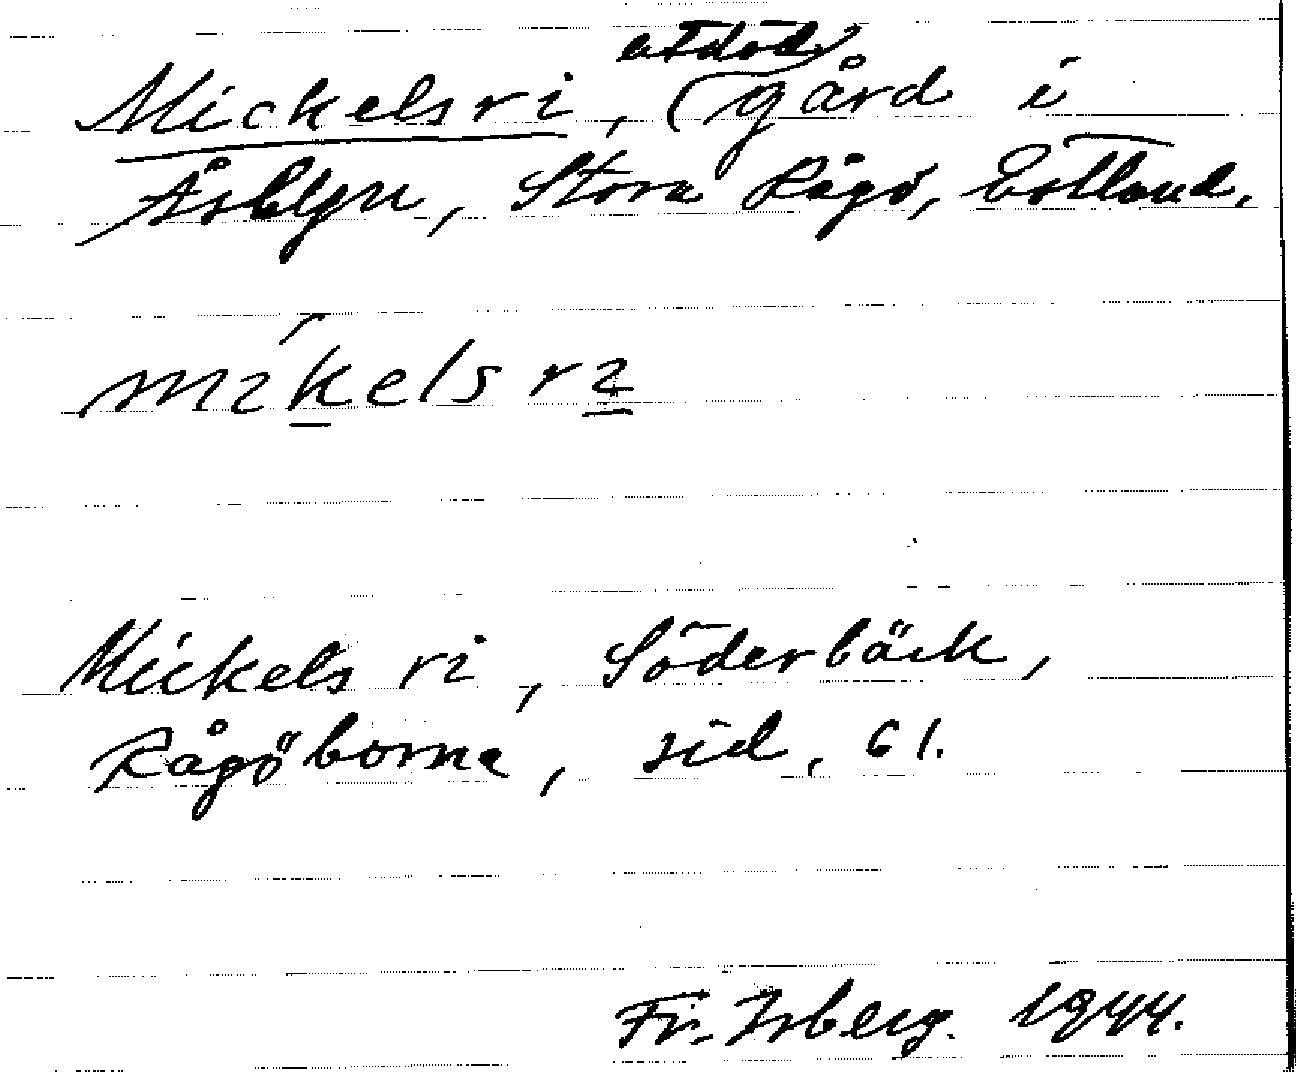 utdöd
Mickelsri, (gård i
Åsblyn, Stora Rågö, Estland.
mikelsri
Mickels ri, Söderbäck,
Rågöborna, sid. 61.
Fr. Isberg. 1944.